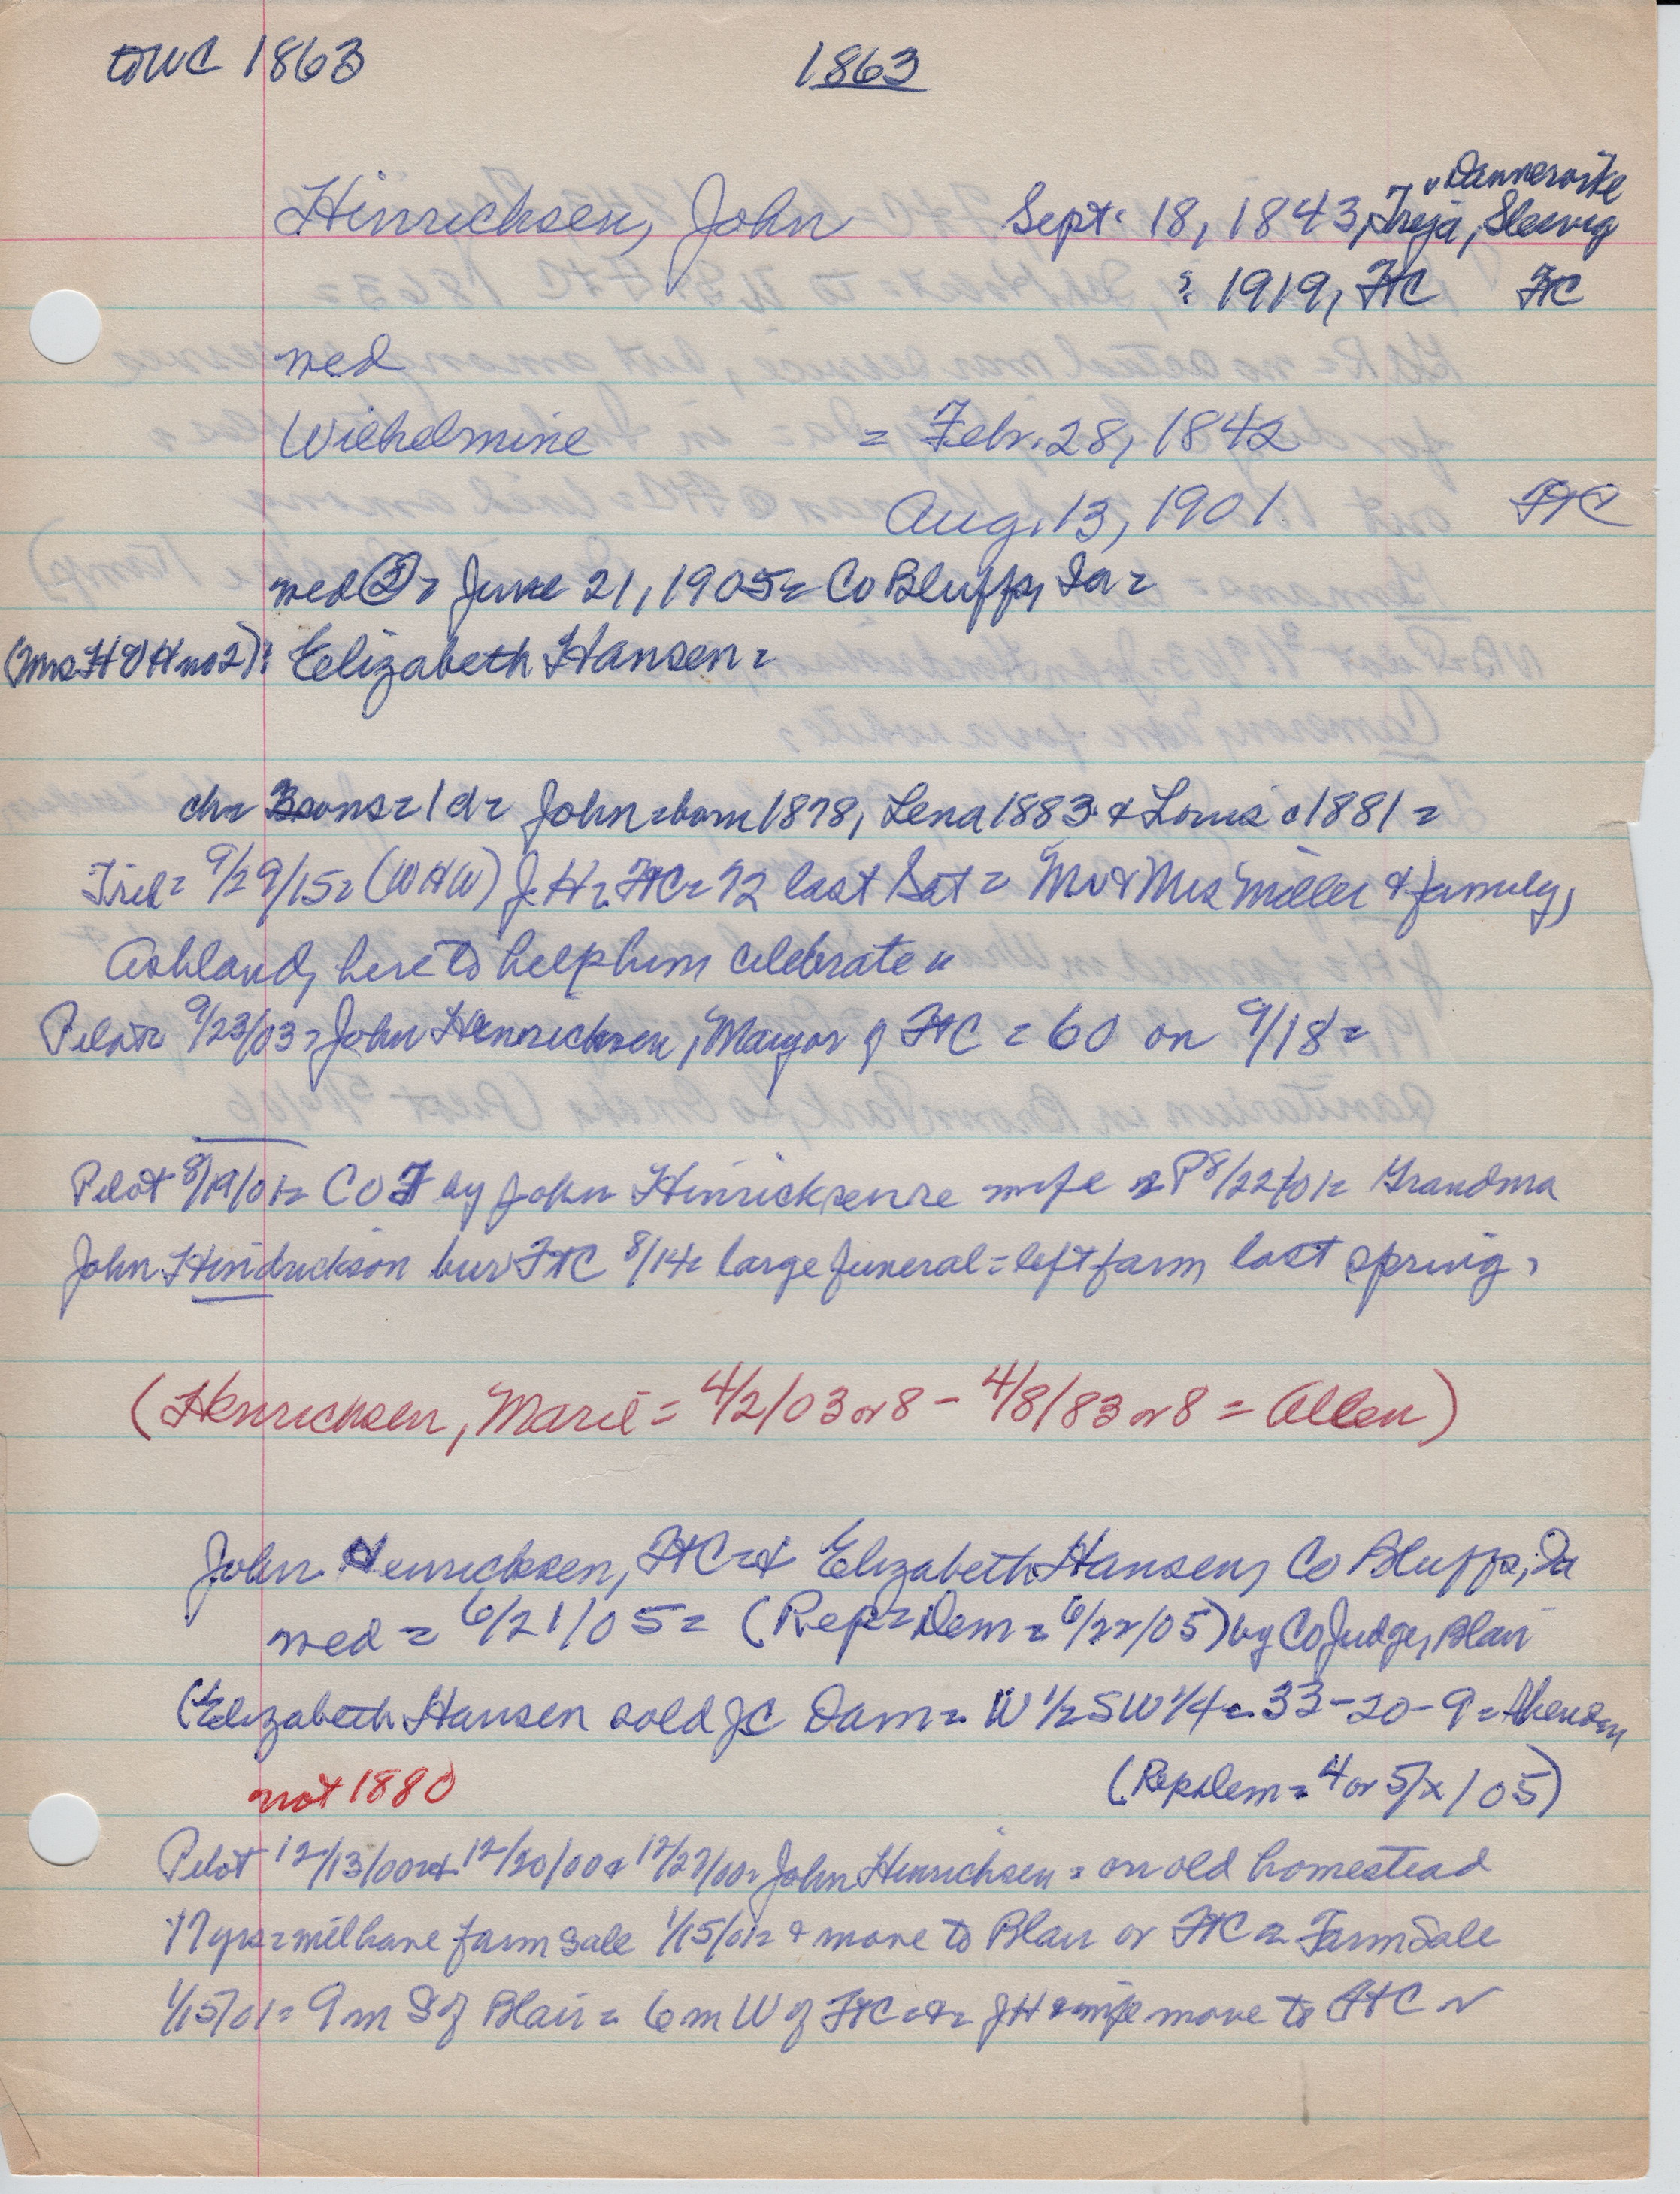 to WC 1863
1863
Hinrichsen, John Sept. 18, 1843, Treja, Slesvig
v Dannevirke
? 1919, FtC FtC
med
Wilhelmine = Febr. 28, 1842
Aug. 13, 1901 FtC
med ② = June 21, 1905 = Co Bluffs, Ia =
(Mrs H V H no 2): Elizabeth Hansen =
ch = 3 sons = 1 d = John = born 1878, Lena 1883 & Louis c 1881 =
Trib = 9/29/15 = (WHW) J. H = FtC = 72 last Sat = Mr & Mrs Miller & family,
Ashland, here to help him celebrate =
Pilot = 9/23/03 = John Henrichsen, Mayor of FtC = 60 on 9/18 =
Pilot 8/19/01 = COT by John Hinrichsen = re wife = P 8/22/01 = Grandma
John Hindrickson bur FtC 8/14 = large funeral = left farm last spring =
(Henrichsen, Marie = 4/2/03 or 8 - 4/8/83 or 8 = Allen)
John Henrichsen, FtC = & Elizabeth Hansen, Co Bluffs, Ia
med = 6/21/05 = (Rep = Dem = 6/22/05) by Co Judge, Blair
(Elizabeth Hansen sold JC Dam = W 1/2 SW 1/4 = 33-20-9 =
not 1880 (Rep Dem = 4 or 5/x/05)
Pilot 12/13/00 = & 12/20/00 & 12/27/00 = John Hinrichsen = on old homestead
17 yrs = will have farm sale 1/15/01 = & move to Blair or FtC = Farm Sale
1/15/01 = 9 m S of Blair = 6 m W of FtC = & = JH & wife move to FtC